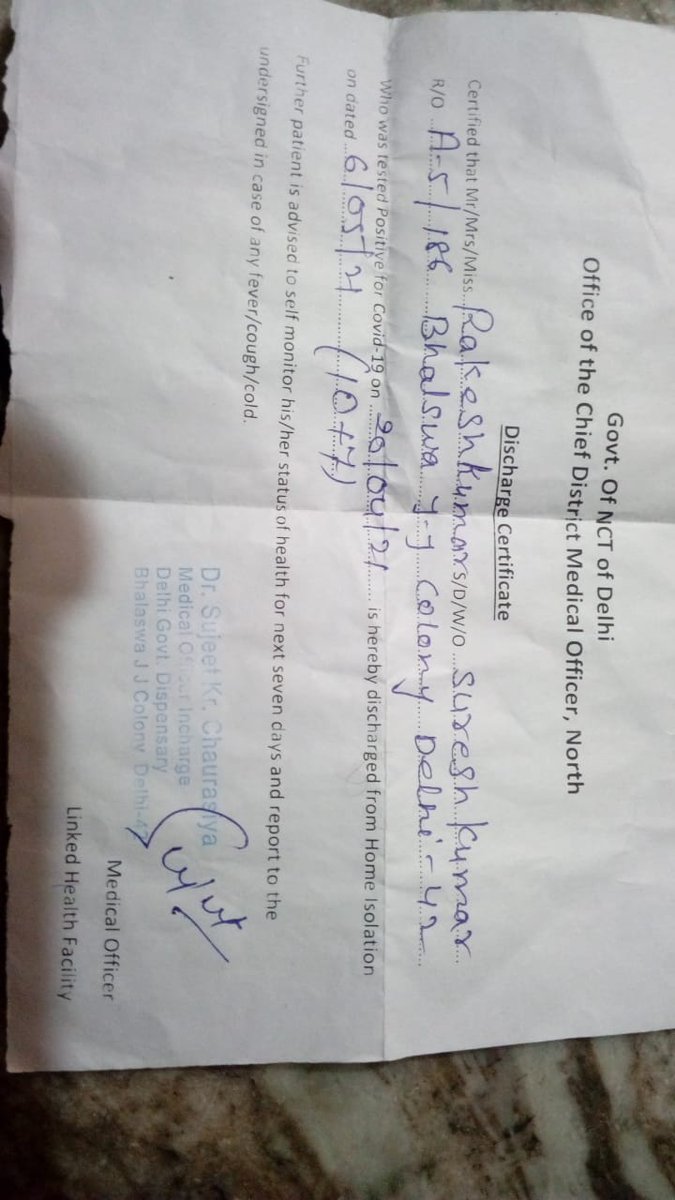 Govt. Of NCT of Delhi
Office of the Chief District Medical Officer, North
Discharge Certificate
Certified that Mr/Mrs/Miss....Rakesh kumar S/D/W/O ...Suresh kumar...
R/O ...A-5/186 Bhalswa J-J Colony Delhi-42...
Who was tested Positive for Covid-19 on ...20/04/21... is hereby discharged from Home Isolation
on dated ...6/05/21 (10+7)
Further patient is advised to self monitor his/her status of health for next seven days and report to the
undersigned in case of any fever/cough/cold.
Dr. Sujeet Kr. Chaurasiya
Medical Officer Incharge
Delhi Govt. Dispensary
Bhalaswa J J Colony, Delhi-42
Medical Officer
Linked Health Facility